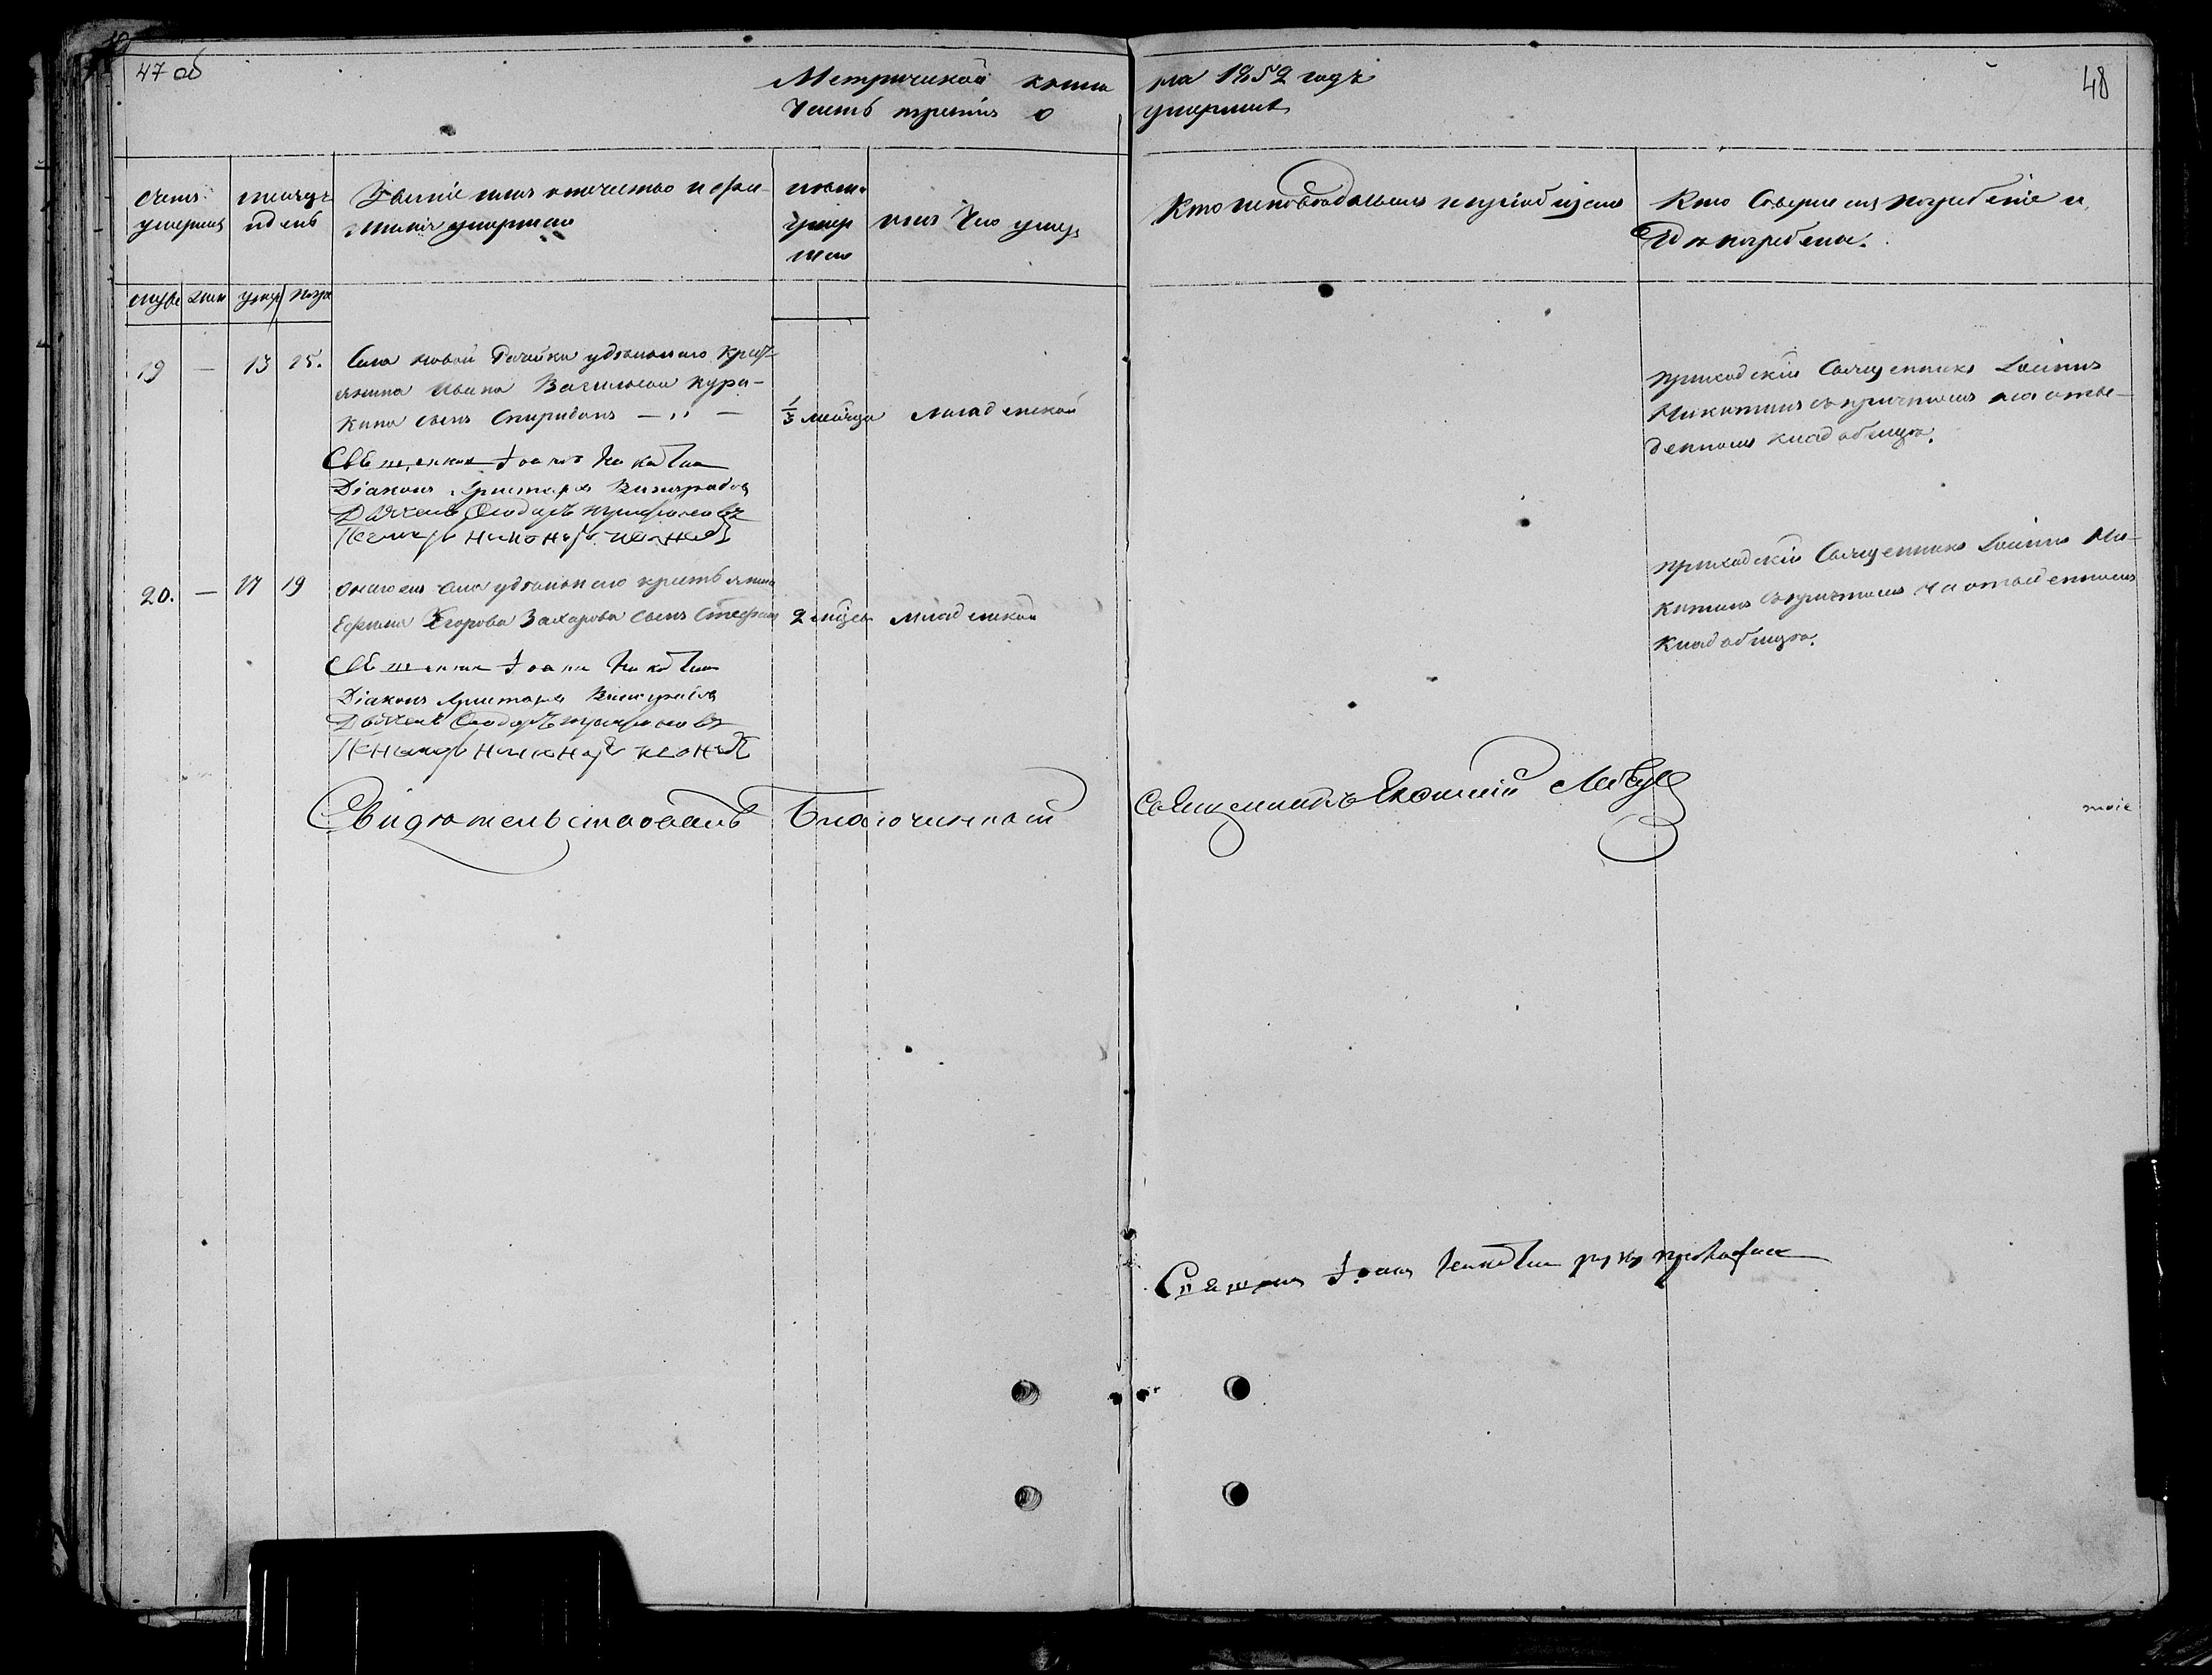 47 об
Метрической книги на 1852 годъ
48
Часть третія о умершихъ
Счетъ умершихъ
месяцъ и день
Званіе имя отечество и фа-
милія умершаго
лета умер шаго
отъ Чего умеръ
Кто исповедовалъ и пріобщалъ
Кто Совершалъ погребеніе и
Где погребены.
муже жен умер погр
19 — 13 15. Села новой удельнаго крест-
янина Ивана Васильева Кура-
кина сынъ Спиридонъ — „ —
1/3 месяца
младенской
приходскій Священникъ Іоаннъ
Никитинъ съ причтомъ на отве-
денномъ кладбище.
Священник Іоаннъ Никитин
Діаконъ Аристархъ Виноградов
Дьячекъ Феодоръ Трифоновъ
Пономарь
20. — 17 19 онаго ж села удельнаго крестьянина
Ефима Егорова Захарова сынъ Стефанъ
2 месец
младенской
приходскій Священникъ Іоаннъ Ни-
китинъ съ причтомъ на отведенномъ
кладбище.
Священник Іоанн Никитин
Діаконъ Аристархъ Виноградов
Дьячекъ Феодоръ Трифоновъ
Пономарь
Свидетельствовалъ Благочинный Священникъ
Іоаннъ Никитин руку приложил